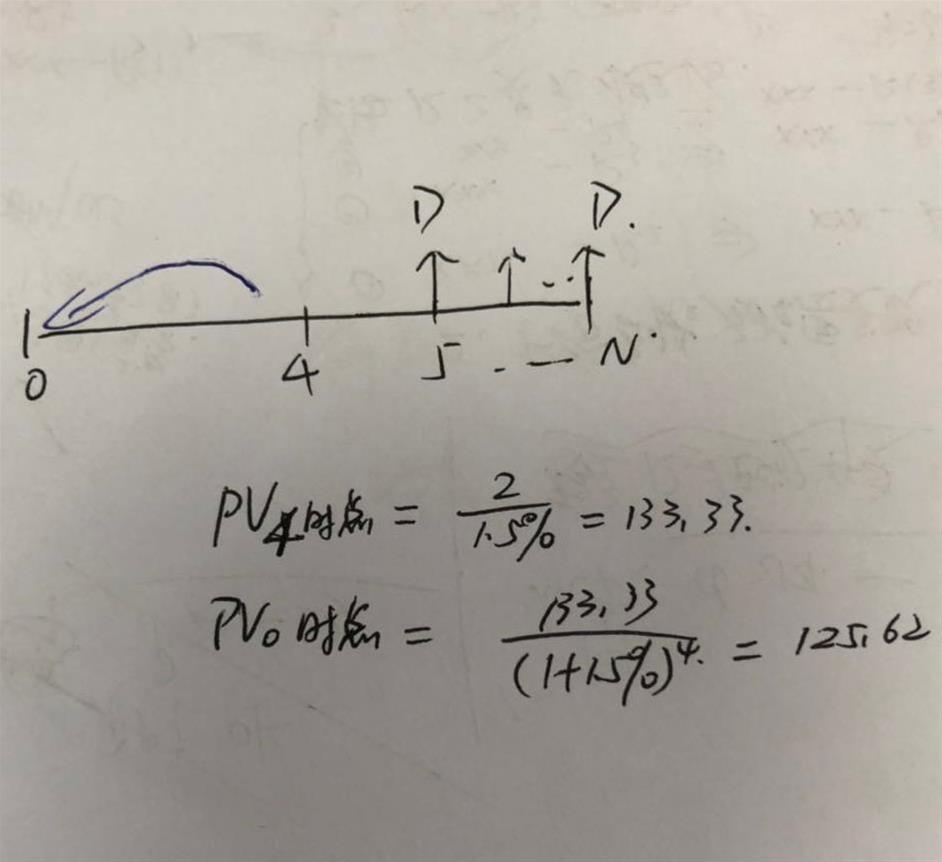 D D.
0 4 5 . — N.
PV4时点 = 2/1.5% = 133.33.
PV0时点 = 133.33/(1+1.5%)^4. = 125.62